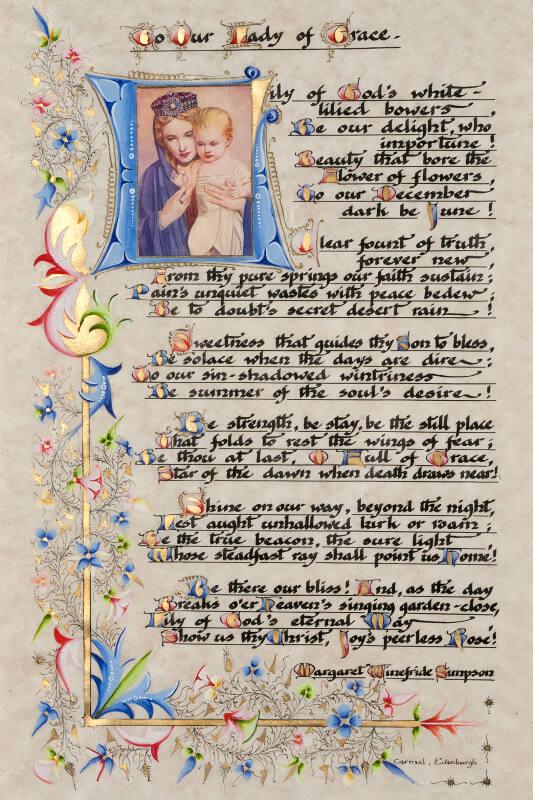 To Our Lady of Grace.
Lily of God's white-
lilied bowers,
Be our delight, who
importune!
Beauty that bore the
Flower of flowers,
To our December
dark be June!
Clear fount of truth,
forever new,
From thy pure springs our faith sustain;
Pain's unquiet wastes with peace bedew;
Be to doubt's secret desert rain!
Sweetness that guides thy Son to bless,
Be solace when the days are dire;
To our sin-shadowed wintriness
Be summer of the soul's desire!
Be strength, be stay, be the still place
That folds to rest the wings of fear;
Be thou at last, O Full of Grace,
Star of the dawn when death draws near!
Shine on our way, beyond the night,
Lest aught unhallowed lurk or roam;
Be the true beacon, the sure light
Whose steadfast ray shall point us Home!
Be there our bliss! And, as the day
Breaks o'er Heaven's singing garden-close,
Lily of God's eternal May
Show us thy Christ, Joy's peerless Rose!
Margaret Winefride Simpson
Carmel, Edinburgh